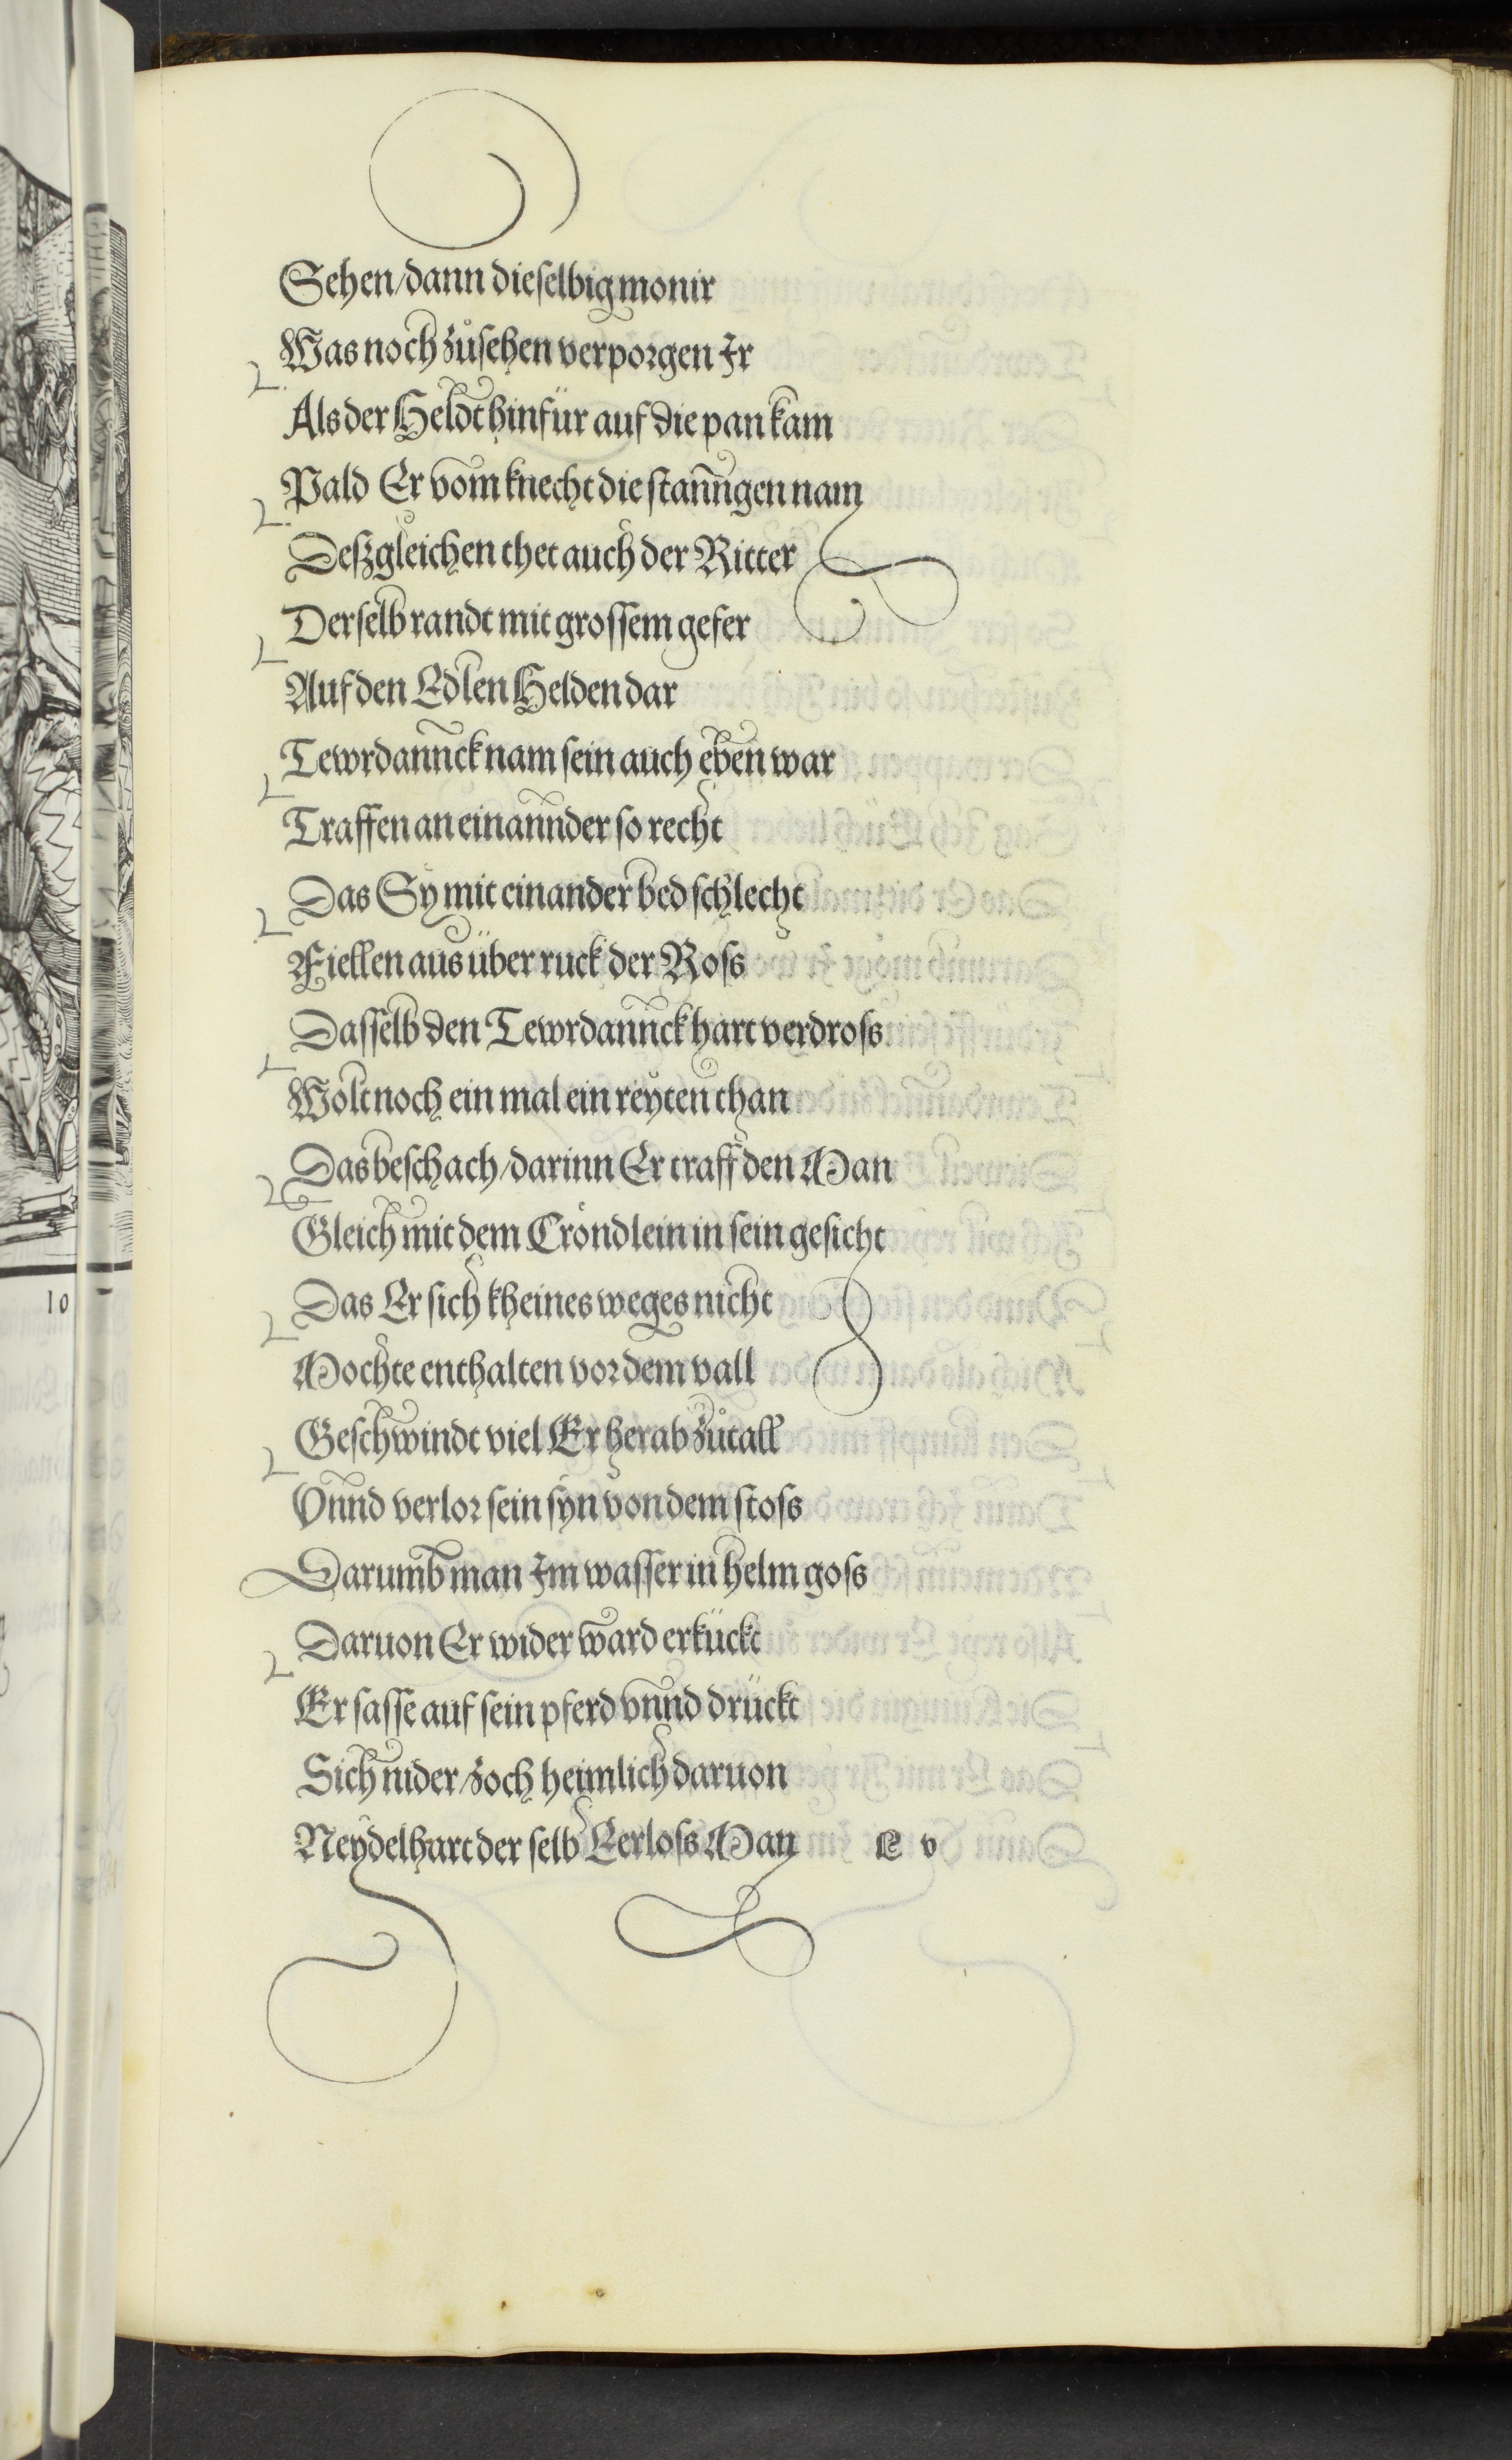 Sehen/dann dieselbig monir
Was noch zůsehen verporgen Ir
Als der Heldt hinfür auf die pan kam
Pald Er vom knecht die stanngen nam
Deßgleichen thet auch der Ritter
Derselb randt mit grossem gefer
Auf den Edlen Helden dar
Tewrdannck nam sein auch eben war
Traffen an einannder so recht
Das Sy mit einander bed schlecht
Fiellen aus über ruck der Ross
Dasselb den Tewrdannck hart verdross
Wolt noch ein mal ein reyten than
Das beschach/darinn Er traff den Man
Gleich mit dem Crondlein in sein gesicht
Das Er sich kheines weges nicht
Mochte enthalten vor dem vall
Geschwindt viel Er herab zůtall
Vnnd verlor sein syn von dem stoss
Darumb man Im wasser in helm goss
Daruon Er wider ward erkückt
Er sasse auf sein pferd vnnd drückt
Sich nider/zoch heimlich daruon
Neydelhart der selb Eerloss Man v
10